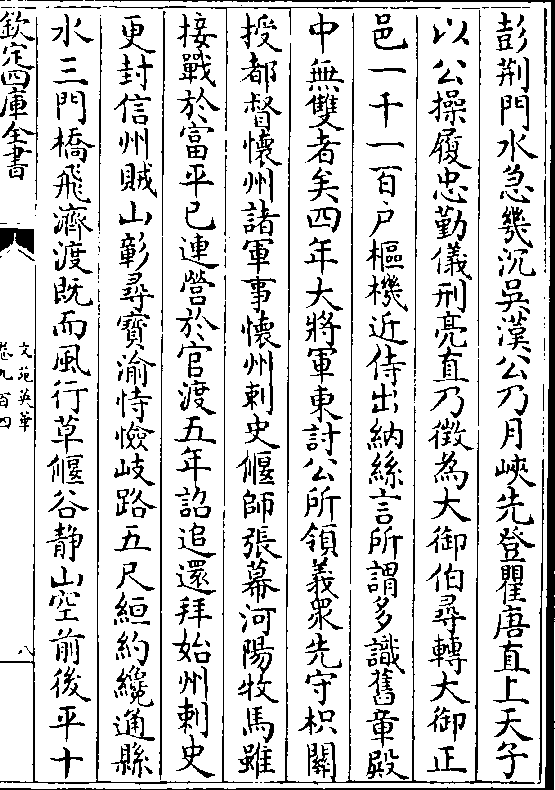 彭荆門水急幾沉吳漢公乃月峽先登瞿唐直上天子
以公操履忠勤儀刑亮直乃徴為大御伯尋轉大御正
邑一千一百户樞機近侍出納絲言所謂多識舊章殿
中無雙者矣四年大將軍東討公所領義衆先守枳關
授都督懷州諸軍事懷州刺史偃師張幕河陽牧馬雖
接戰於富平已連營於官渡五年詔追還拜始州刺史
更封信州賊山彰尋寳渝恃憸岐路五尺絙約纔通縣
水三門橋飛濟渡既而風行草偃谷静山空前後平十
欽定四庫全書
文苑英華
卷九百四
八